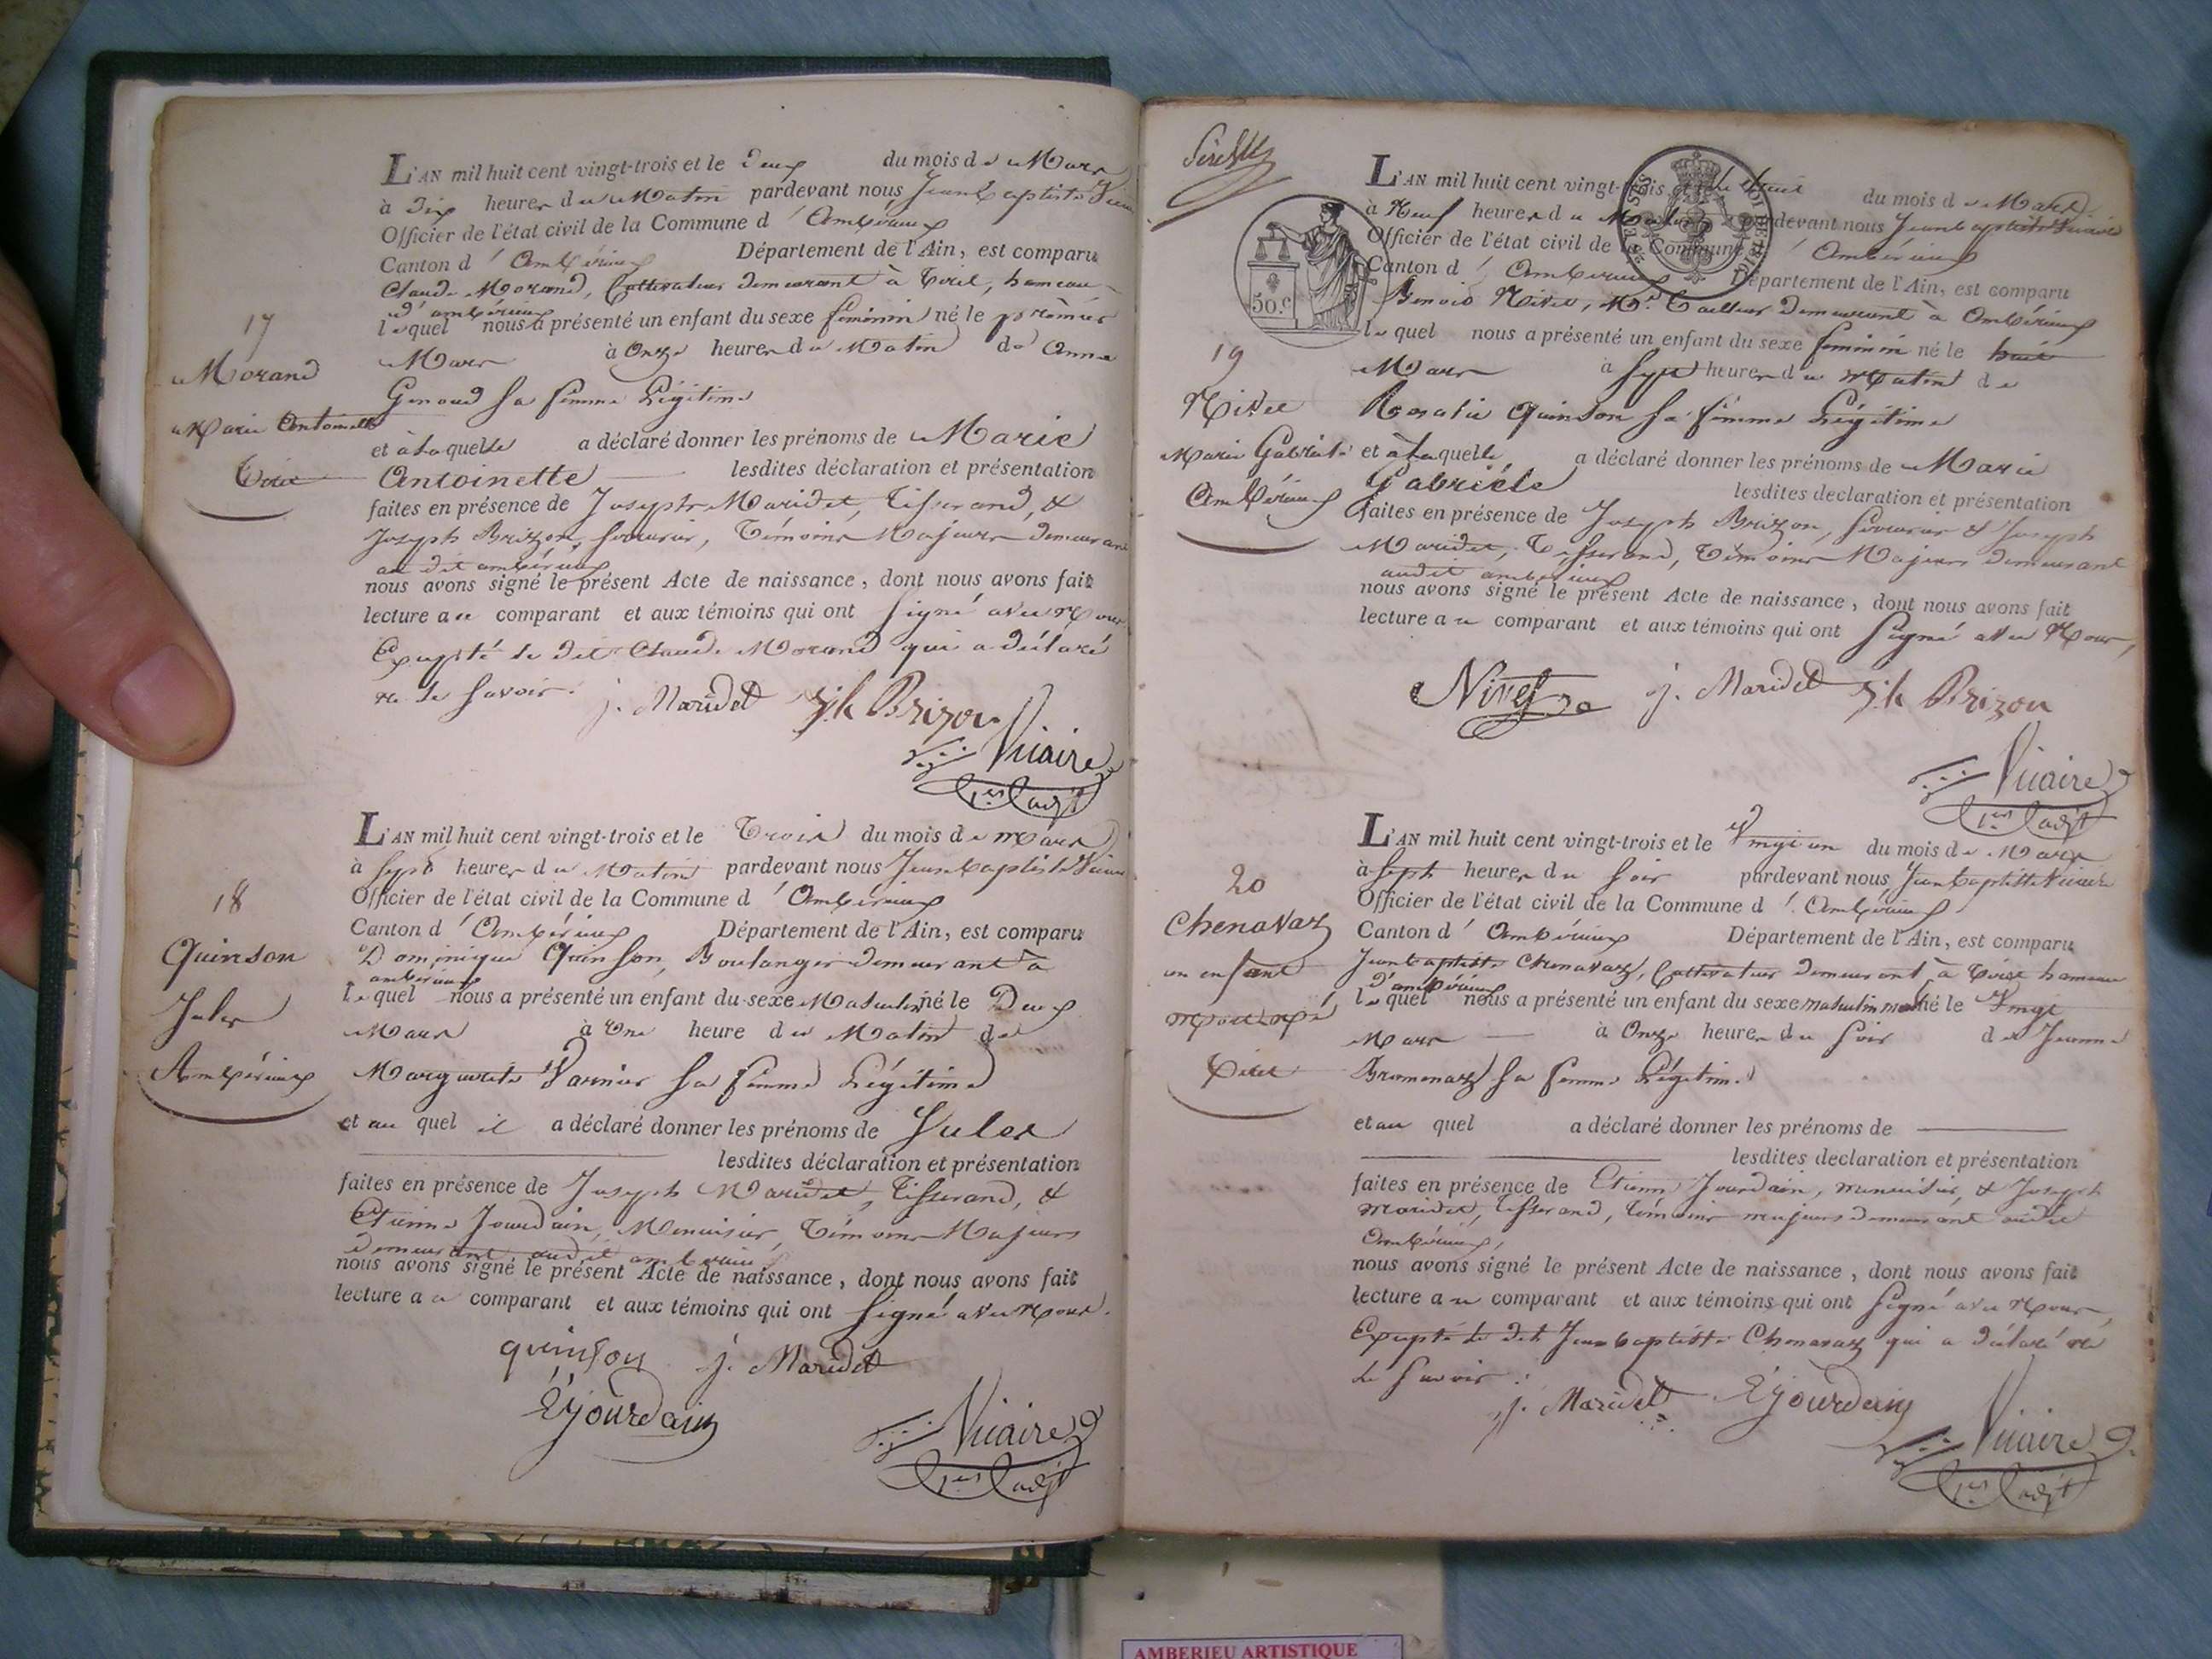 L'AN mil huit cent vingt-trois et le Deux du mois de Mars
à Dix heures du Matin pardevant nous Jean baptiste
Officier de l'état civil de la Commune d'Ambérieux
Canton d'Ambérieux Département de l'Ain, est comparu
Claude Morand, Cultivateur demeurant à Tiret, hameau
d'ambérieux
lequel nous a présenté un enfant du sexe féminin né le premier
17
Morand
Marie Antoinette
Tiret
Mars à Onze heures du Matin de Anne
Genoud sa femme Légitime
et à laquelle a déclaré donner les prénoms de Marie
Antoinette lesdites déclaration et présentation
faites en présence de Joseph Maridet, Tisserand, &
Joseph Brizon, serrurier, Témoins Majeurs demeurant
au dit ambérieux
nous avons signé le présent Acte de naissance, dont nous avons fait
lecture au comparant et aux témoins qui ont signé avec Nous
Excepté le dit Claude Morand qui a déclaré
ne le savoir.
j. Maridet jh Brizon
Vicaire
1er adjt
L'AN mil huit cent vingt-trois et le Trois du mois de Mars
à sept heures du Matin pardevant nous Jean baptiste
Officier de l'état civil de la Commune d'Ambérieux
Canton d'Ambérieux Département de l'Ain, est comparu
Dominique Quinson, Boulanger demeurant à
ambérieux
lequel nous a présenté un enfant du sexe Masculin né le Deux
18
Quinson
Jules
Ambérieux
Mars à Une heure du Matin de
Marguerite Varnier sa femme Légitime
et au quel il a déclaré donner les prénoms de Jules
lesdites déclaration et présentation
faites en présence de Joseph Maridet, Tisserand, &
Etienne Jourdain, Menuisier, Témoins Majeurs
demeurant audit ambérieux
nous avons signé le présent Acte de naissance, dont nous avons fait
lecture au comparant et aux témoins qui ont signé avec Nous.
quinson j. Maridet
E jourdain
Vicaire
1er adjt
L'AN mil huit cent vingt-trois et le huit du mois de Mars
à Neuf heures du Matin pardevant nous Jean baptiste Vicaire
Officier de l'état civil de la Commune d'Ambérieux
Canton d'Ambérieux Département de l'Ain, est comparu
Benoid Nivet, Md. Tailleur demeurant à Ambérieux
50.c
lequel nous a présenté un enfant du sexe féminin né le huit
19
Nivet
Marie Gabriele
Ambérieux
Mars à sept heures du Matin de
Rosalie Quinson sa femme Légitime
et à laquelle a déclaré donner les prénoms de Marie
Gabriele lesdites declaration et présentation
faites en présence de Joseph Brizon, serrurier & Joseph
Maridet, Tisserand, Témoins Majeurs demeurant
audit ambérieux
nous avons signé le présent Acte de naissance, dont nous avons fait
lecture au comparant et aux témoins qui ont signé avec Nous,
Nivet j. Maridet jh Brizon
Vicaire
1er adjt
L'AN mil huit cent vingt-trois et le Vingt un du mois de Mars
à sept heures du soir pardevant nous Jean baptiste Vicaire
Officier de l'état civil de la Commune d'Ambérieux
Canton d'Ambérieux Département de l'Ain, est comparu
Jean baptiste Chenavaz, Cultivateur demeurant à Tiret hameau
d'ambérieux
lequel nous a présenté un enfant du sexe masculin mort né le Vingt
20
Chenavaz
un enfant
Mort né
Tiret
Mars à Onze heures du soir de Jeanne
Bramenaz sa femme Légitime
et au quel a déclaré donner les prénoms de
lesdites declaration et présentation
faites en présence de Etienne Jourdain, menuisier, & Joseph
Maridet, Tisserand, témoins majeurs demeurant audit
Ambérieux,
nous avons signé le présent Acte de naissance, dont nous avons fait
lecture au comparant et aux témoins qui ont signé avec Nous,
Excepté le dit Jean baptiste Chenavaz qui a déclaré ne
le savoir.
j. Maridet E jourdain
Vicaire
1er adjt
AMBERIEU ARTISTIQUE